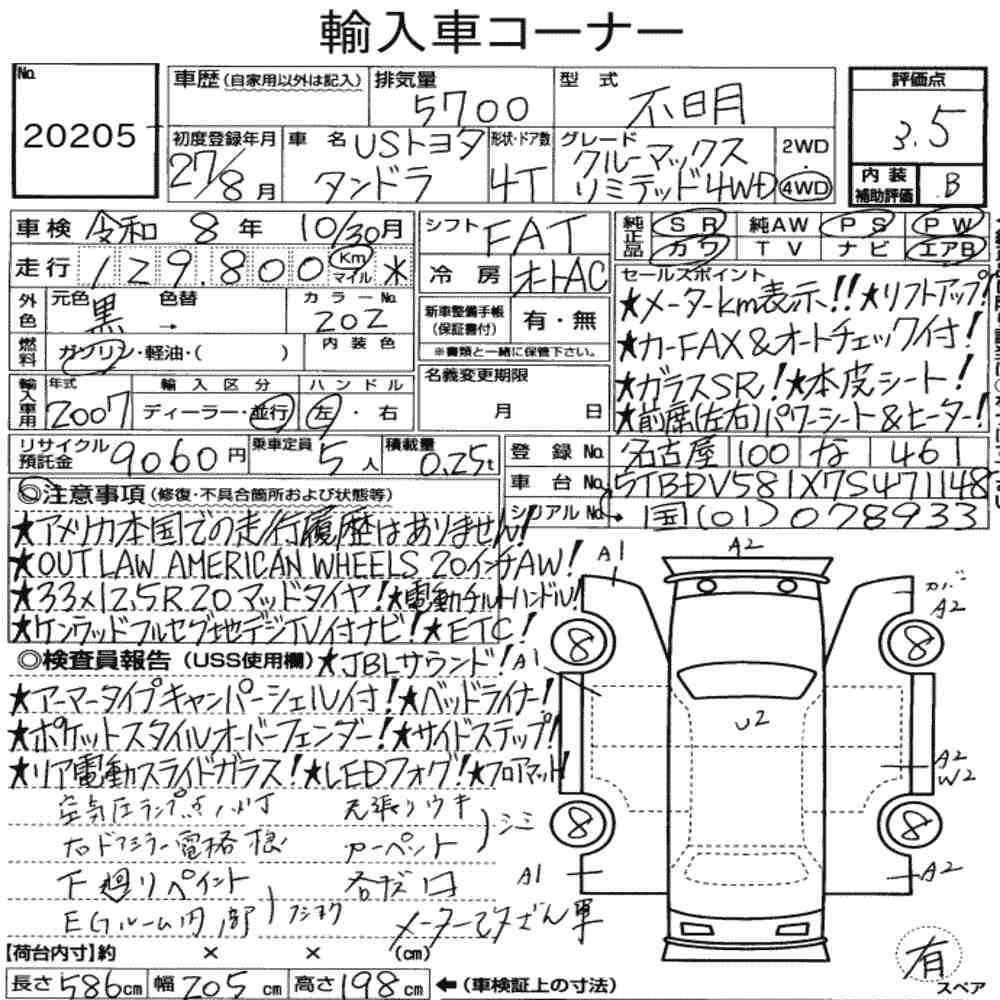 輸入車コーナー
No. 20205
車歴 (自家用以外は記入)
排気量 5700
型式 不明
評価点 3.5
初度登録年月 27/8月
車名 USトヨタ タンドラ
形状・ドア数 4T
グレード クルーマックス リミテッド4WD
2WD 4WD
内装補助評価 B
車検 令和 8年 10/30月
シフト FAT
純正品 SR 純AW PS PW
カワ TV ナビ エアB
走行 129.800 Km マイル *
冷房 オートAC
セールスポイント
★メーターkm表示!!★リフトアップ!
外色 元色 黒 色替 → カラーNo. 202
新車整備手帳(保証書付) 有・無
※書類と一緒に保管下さい。
★カーFAX&オートチェック付!
燃料 ガソリン・軽油・( ) 内装色
★ガラスSR!★本皮シート!
輸入車用 年式 2007 輸入区分 ディーラー・並行 ハンドル 左・右
名義変更期限 月 日
★前席(左右)パワーシート&ヒーター!
リサイクル預託金 9060円 乗車定員 5人 積載量 0.25t
登録No. 名古屋 100 な 461
車台No. 5TBDV581X7S471148
シリアルNo. 国(01)078933
◎注意事項 (修復・不具合箇所および状態等)
★アメリカ本国での走行履歴はありません!
★OUTLAW AMERICAN WHEELS 20インチAW!
★33×12.5R20 マッドタイヤ!★電動チルトハンドル!
★ケンウッドフルセグ地デジTV付ナビ!★ETC!
◎検査員報告 (USS使用欄) ★JBLサウンド!
★アーマータイプキャンパーシェル付!★ベッドライナー!
★ポケットスタイルオーバーフェンダー!★サイドステップ!
★リア電動スライドガラス!★LEDフォグ!★フロアマット!
空気圧ランプ点灯 天張りウキ
右ドアミラー電格 カーペット シミ
下廻りペイント
EGルーム内部 フショク メーター
【荷台内寸】約 × × (cm)
長さ586cm 幅205cm 高さ198cm ←(車検証上の寸法)
A1 A2 カバー A2
8 8
A1 U2
A2 W2
8 8
A1 A2
有 スペア